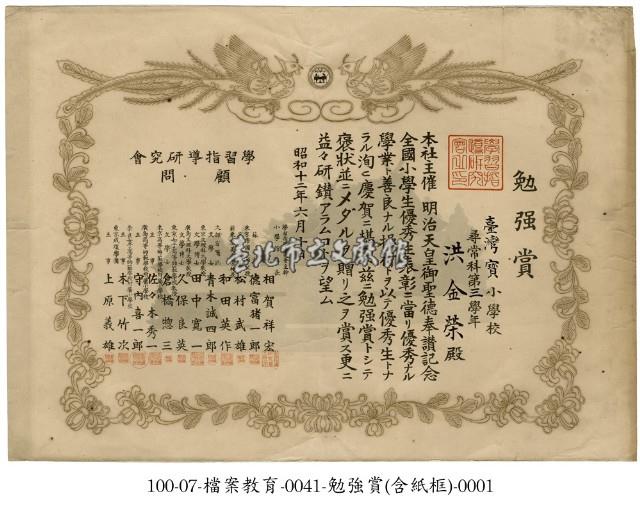 勉强賞
臺灣寶小學校
尋常科第三學年
洪金榮殿
本社主催明治天皇御聖德奉讃記念
全國小學生優秀生表彰ニ當リ優秀ナル
學業ト善良ナル
ラル洵ニ慶賀ニ堪
褒狀竝ニメダルヲ贈リ之ヲ賞ス更ニ
益々研鑽アラムコトヲ望ム
昭和十二年六月十日
學習指導研究會
顧問
相賀祥宏
德富猪一郎
松村武雄
和田英作
青木誠四郎
田中寛一
久保良英
倉橋惣三
佐々木秀一
守內喜一郎
木下竹次
上原義雄
臺北市立文獻館
100-07-檔案教育-0041-勉強賞(含紙框)-0001